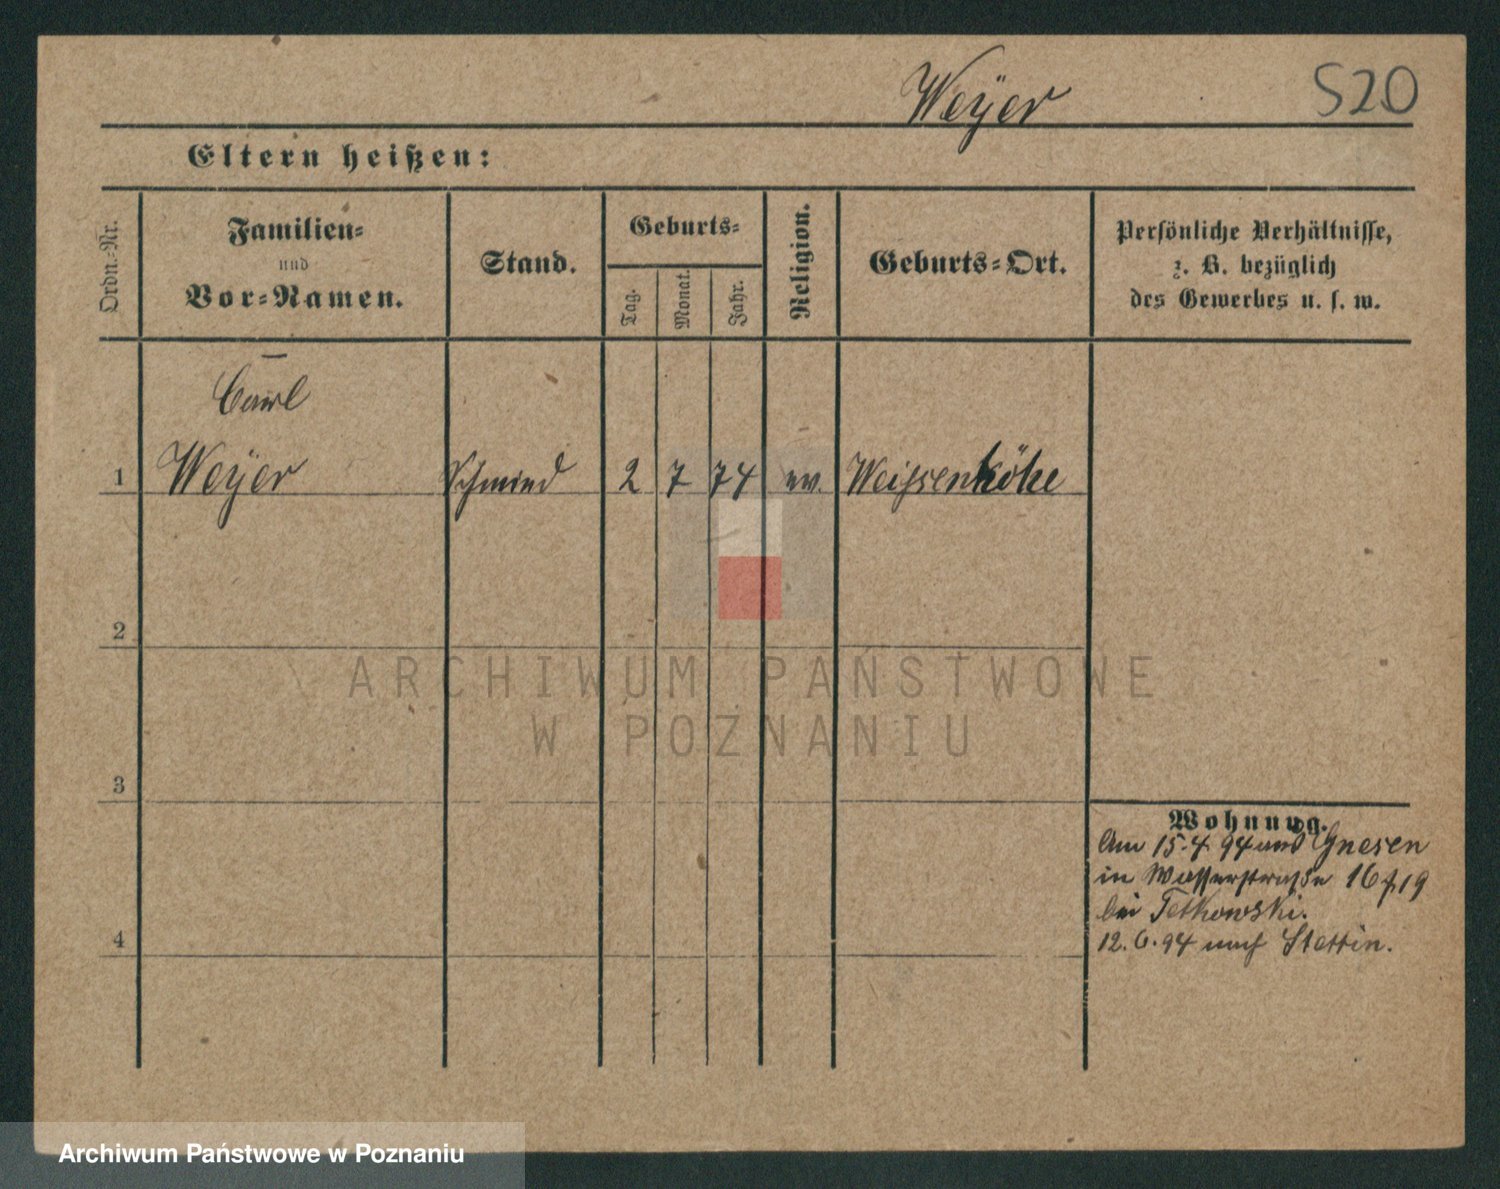 Weÿer
520
Eltern heißen:
Ordn.-Nr.
Familien-
und
Vor-Namen.
Stand.
Geburts-
Tag.
Monat.
Jahr.
Religion.
Geburts-Ort.
Persönliche Verhältnisse,
z. B. bezüglich
des Gewerbes u. s. w.
Carl
1 Weÿer Schmied 2 7 74 ev. Weissenhöhe
2
3
4
Wohnung.
Am 15.4.94 aus Gnesen
in Wasserstraße 16 19
bei Tetkowski.
12.6.94 nach Stettin.
ARCHIWUM PAŃSTWOWE
W POZNANIU
Archiwum Państwowe w Poznaniu